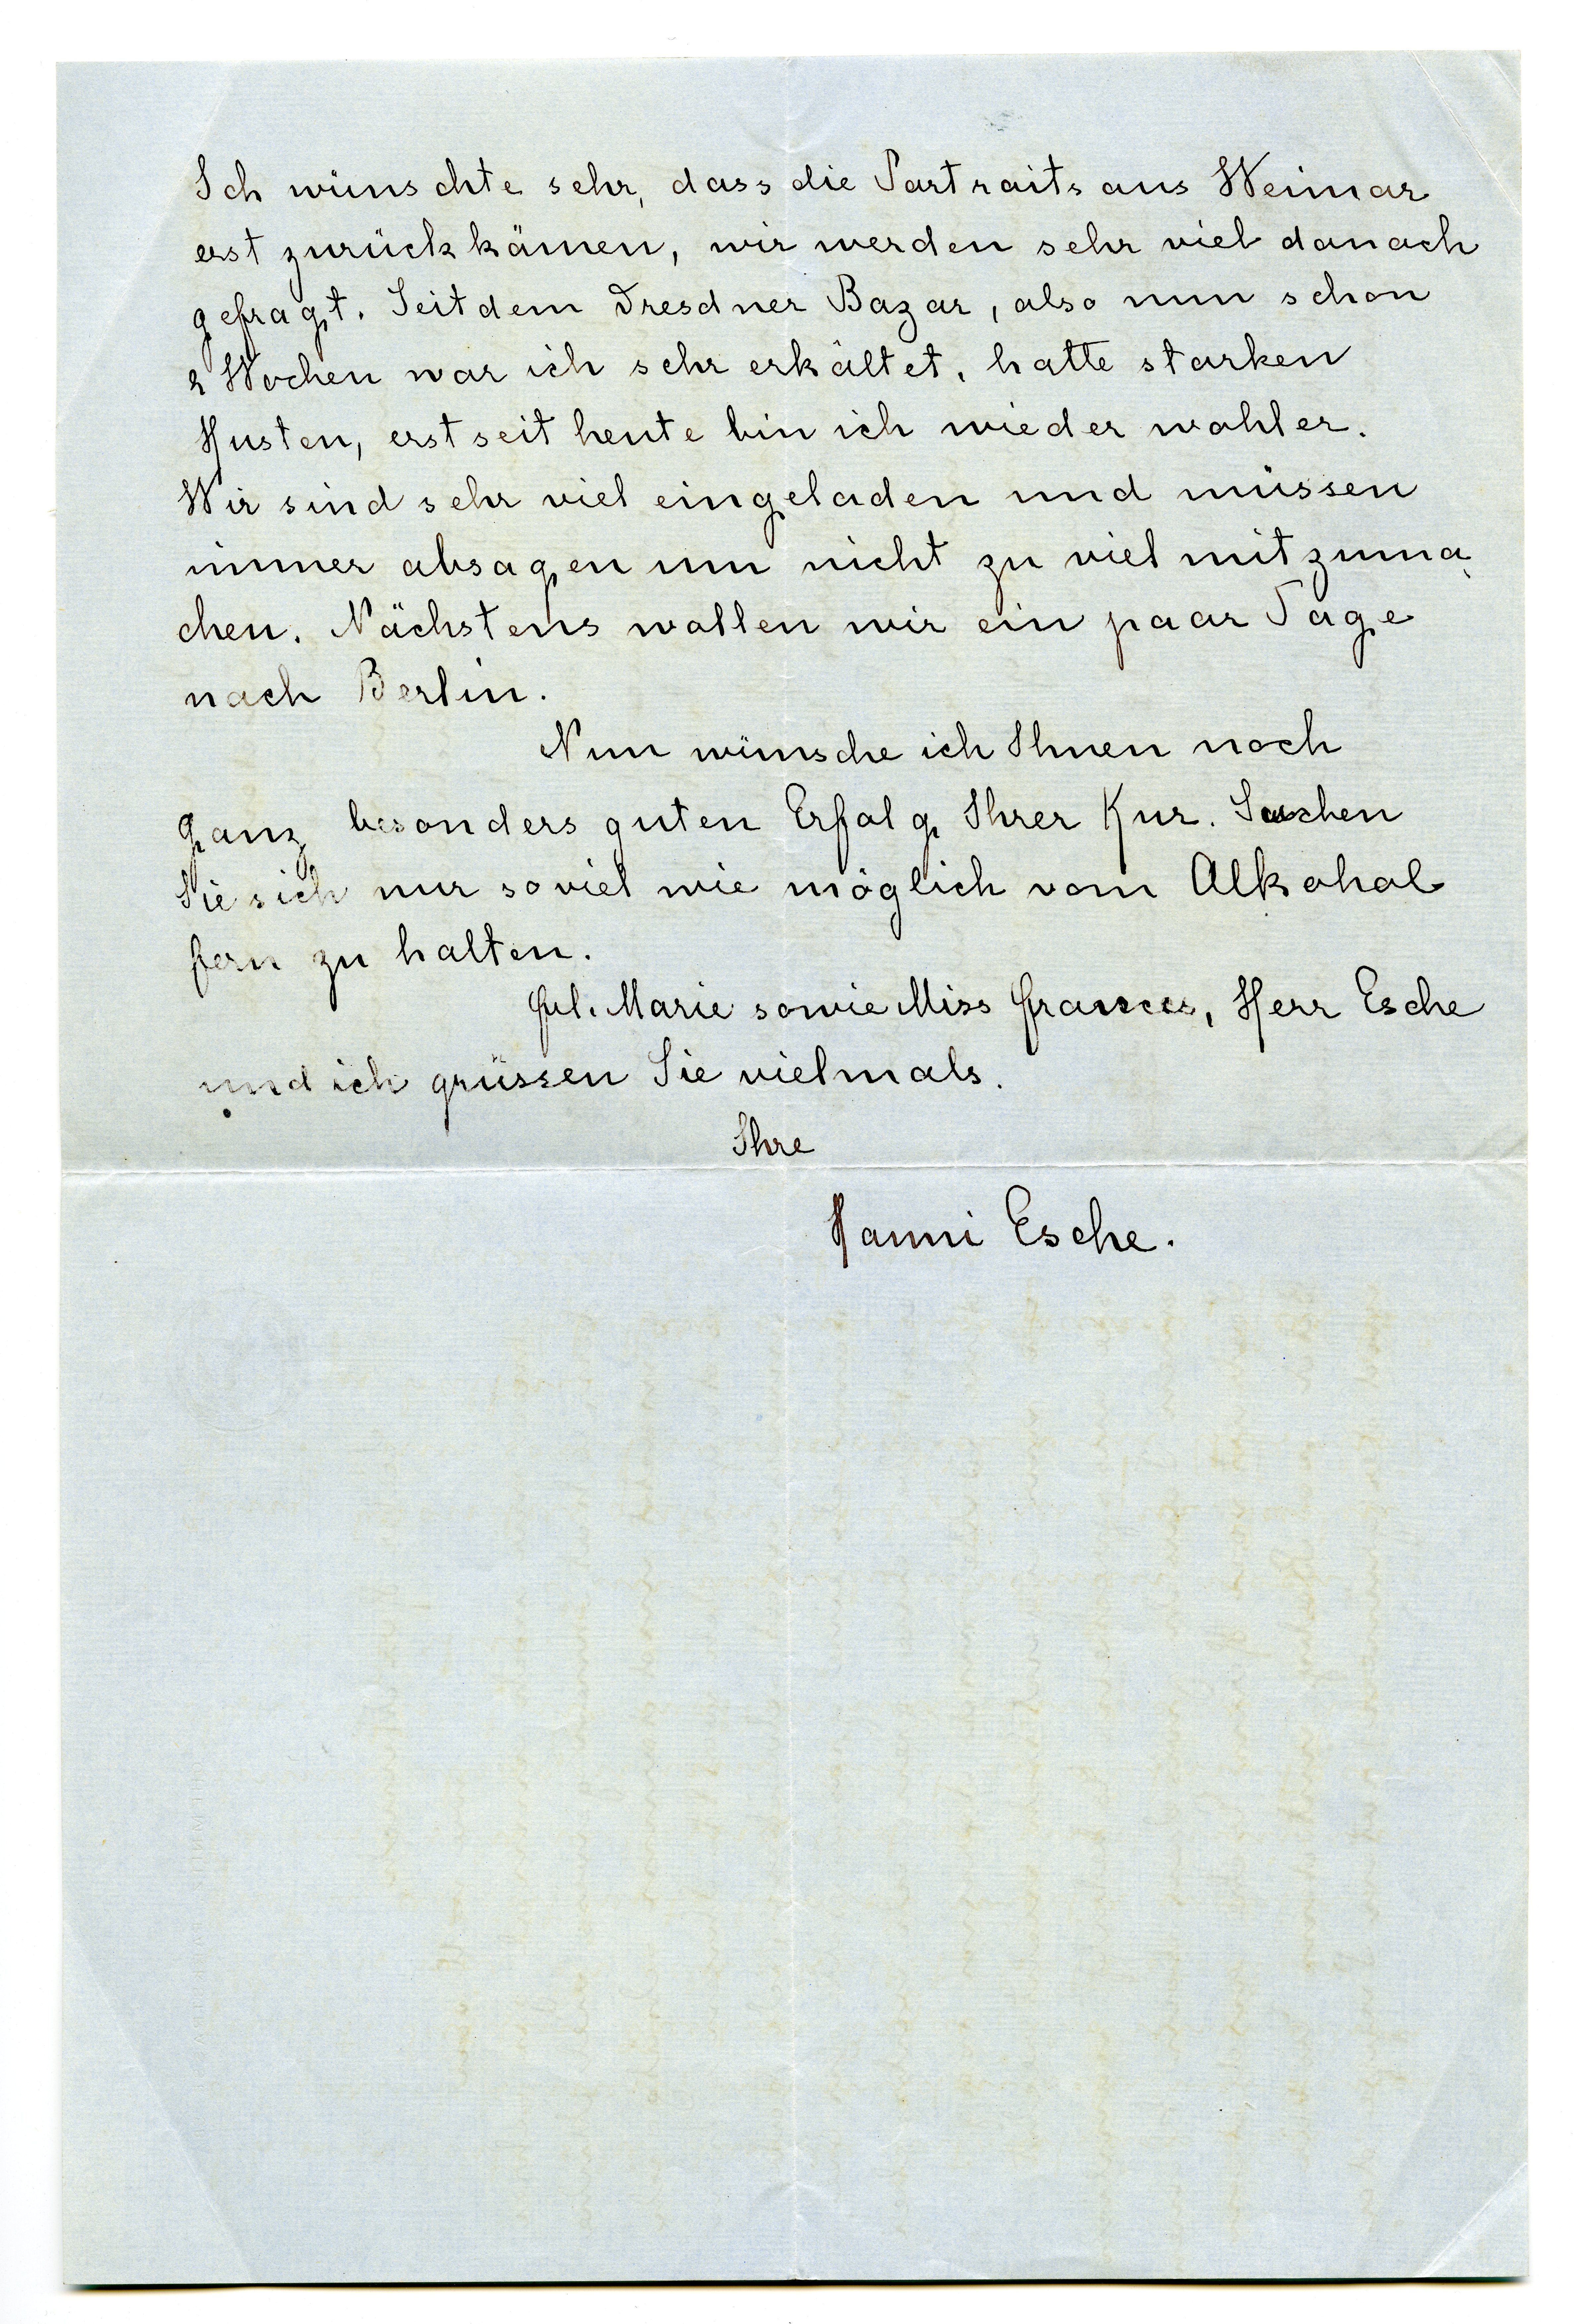 Ich wünschte sehr, dass die Portraits aus Weimar
erst zurück kämen, wir werden sehr viel danach
gefragt. Seit dem Dresdner Bazar, also nun schon
2 Wochen war ich sehr erkältet, hatte starken
Husten, erst seit heute bin ich wieder wohler.
Wir sind sehr viel eingeladen und müssen
immer absagen um nicht zu viel mitzuma
chen. Nächstens wollen wir ein paar Tage
nach Berlin.
Nun wünsche ich Ihnen noch
ganz besonders guten Erfolg Ihrer Kur. Suchen
Sie sich nur soviel wie möglich vom Alkohol
fern zu halten.
Frl. Marie sowie Miss Frances, Herr Esche
und ich grüssen Sie vielmals.
Ihre
Hanni Esche.